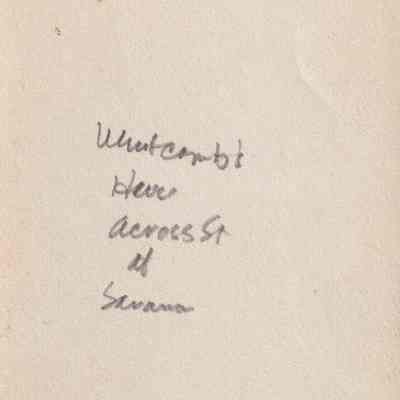 Whitcomb's
Here
Across St
at
Savana